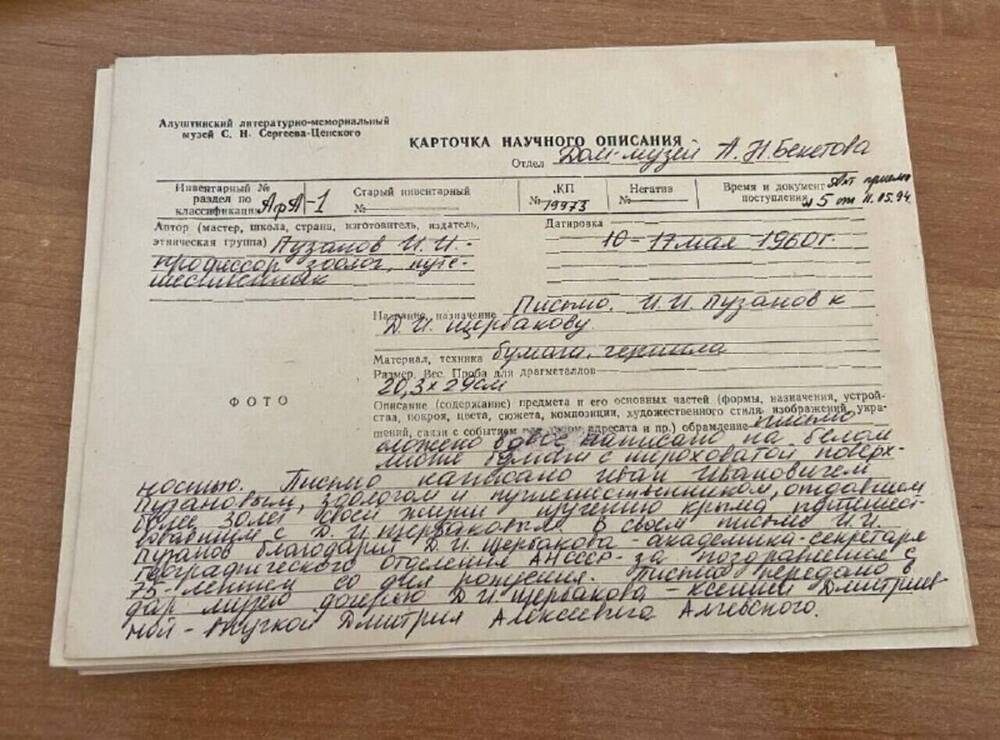 Алуштинский литературно-мемориальный
музей С. Н. Сергеева-Ценского
КАРТОЧКА НАУЧНОГО ОПИСАНИЯ
Отдел Дом-музей А.Н.Бекетова
Инвентарный №
раздел по
классификации АфА-1
Старый инвентарный
№
КП
№ 19973
Негатив
№
Время и документ Акт приема
поступления №5 от 11.05.94.
Автор (мастер, школа, страна, изготовитель, издатель,
этническая группа) Пузанов И.И. -
профессор зоолог, путе-
шественник
Датировка
10-17 мая 1960г.
Название, назначение Письмо. И.И. Пузанов к
Д.И. Щербакову.
Материал, техника бумага, чернила
Размер. Вес. Проба для драгметаллов
20,3 х 29см
Описание (содержание) предмета и его основных частей (формы, назначения, устрой-
ства, покроя, цвета, сюжета, композиции, художественного стиля, изображений, укра-
шений, связи с событием адресата и пр.) обрамление письмо
сложено вдвое написано на белом
листе бумаги с шероховатой поверх-
ностью. Письмо написано Иван Ивановичем
Пузановым, зоологом и путешественником, отдавшем
более 30 лет своей жизни изучению Крыма
с Д.И. Щербаковым. В своем письме И.И.
Пузанов благодарит Д.И. Щербакова - академика-секретаря
географического отделения АНСССР - за поздравления с
75-летием со дня рождения. Письмо передано в
дар музею дочерью Д.И. Щербакова - Ксенией Дмитриев
ной - внучкой Дмитрия Алексеевича Алчевского.
ФОТО